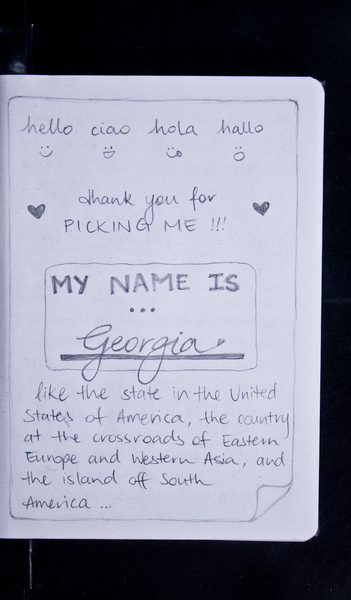 hello ciao hola hallo
thank you for
PICKING ME !!!
MY NAME IS
...
Georgia
like the state in the United
States of America, the country
at the crossroads of Eastern
Europe and Western Asia, and
the island off South
America ...